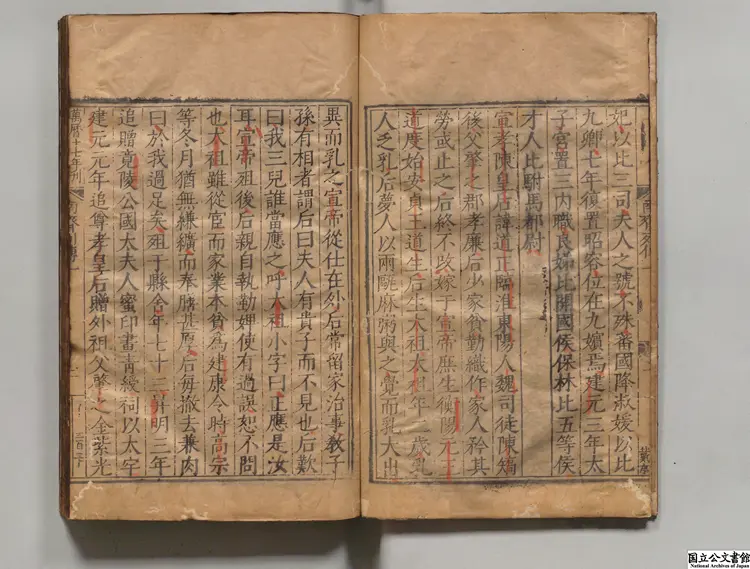 妃以比三司夫人之號不殊蕃國降淑媛以比
九卿七年復置昭容位在九嬪焉建元三年太
子宮置三内職良娣比開國侯保林比五等侯
才人比駙馬都尉
宣孝陳皇后諱道正臨淮東陽人魏司徒陳矯
後父肇之郡孝廉后少家貧勤織作家人矜其
勞或止之后終不改嫁于宣帝庶生衡陽元王
道度始安貞王道生后生太祖太祖年二歲乳
人乏乳后夢人以兩甌麻粥與之覺而乳大出
異而乳之宣帝從仕在外后常留家治事教子
孫有相者謂后曰夫人有貴子而不見也后歎
曰我三兒誰當應之呼太祖小字曰正應是汝
耳宣帝殂後后親自執勤婢使有過誤恕不問
也太祖雖從宦而家業本貧為建康令時高宗
等冬月猶無縑纊而奉膳甚厚后每撤去兼肉
曰於我過足矣殂于縣舍年七十三昇明三年
追贈竟陵公國太夫人蜜印畫青綬祠以太牢
建元元年追尊孝皇后贈外祖父肇之金紫光
萬曆十七年刊
国立公文書館
National Archives of Japan